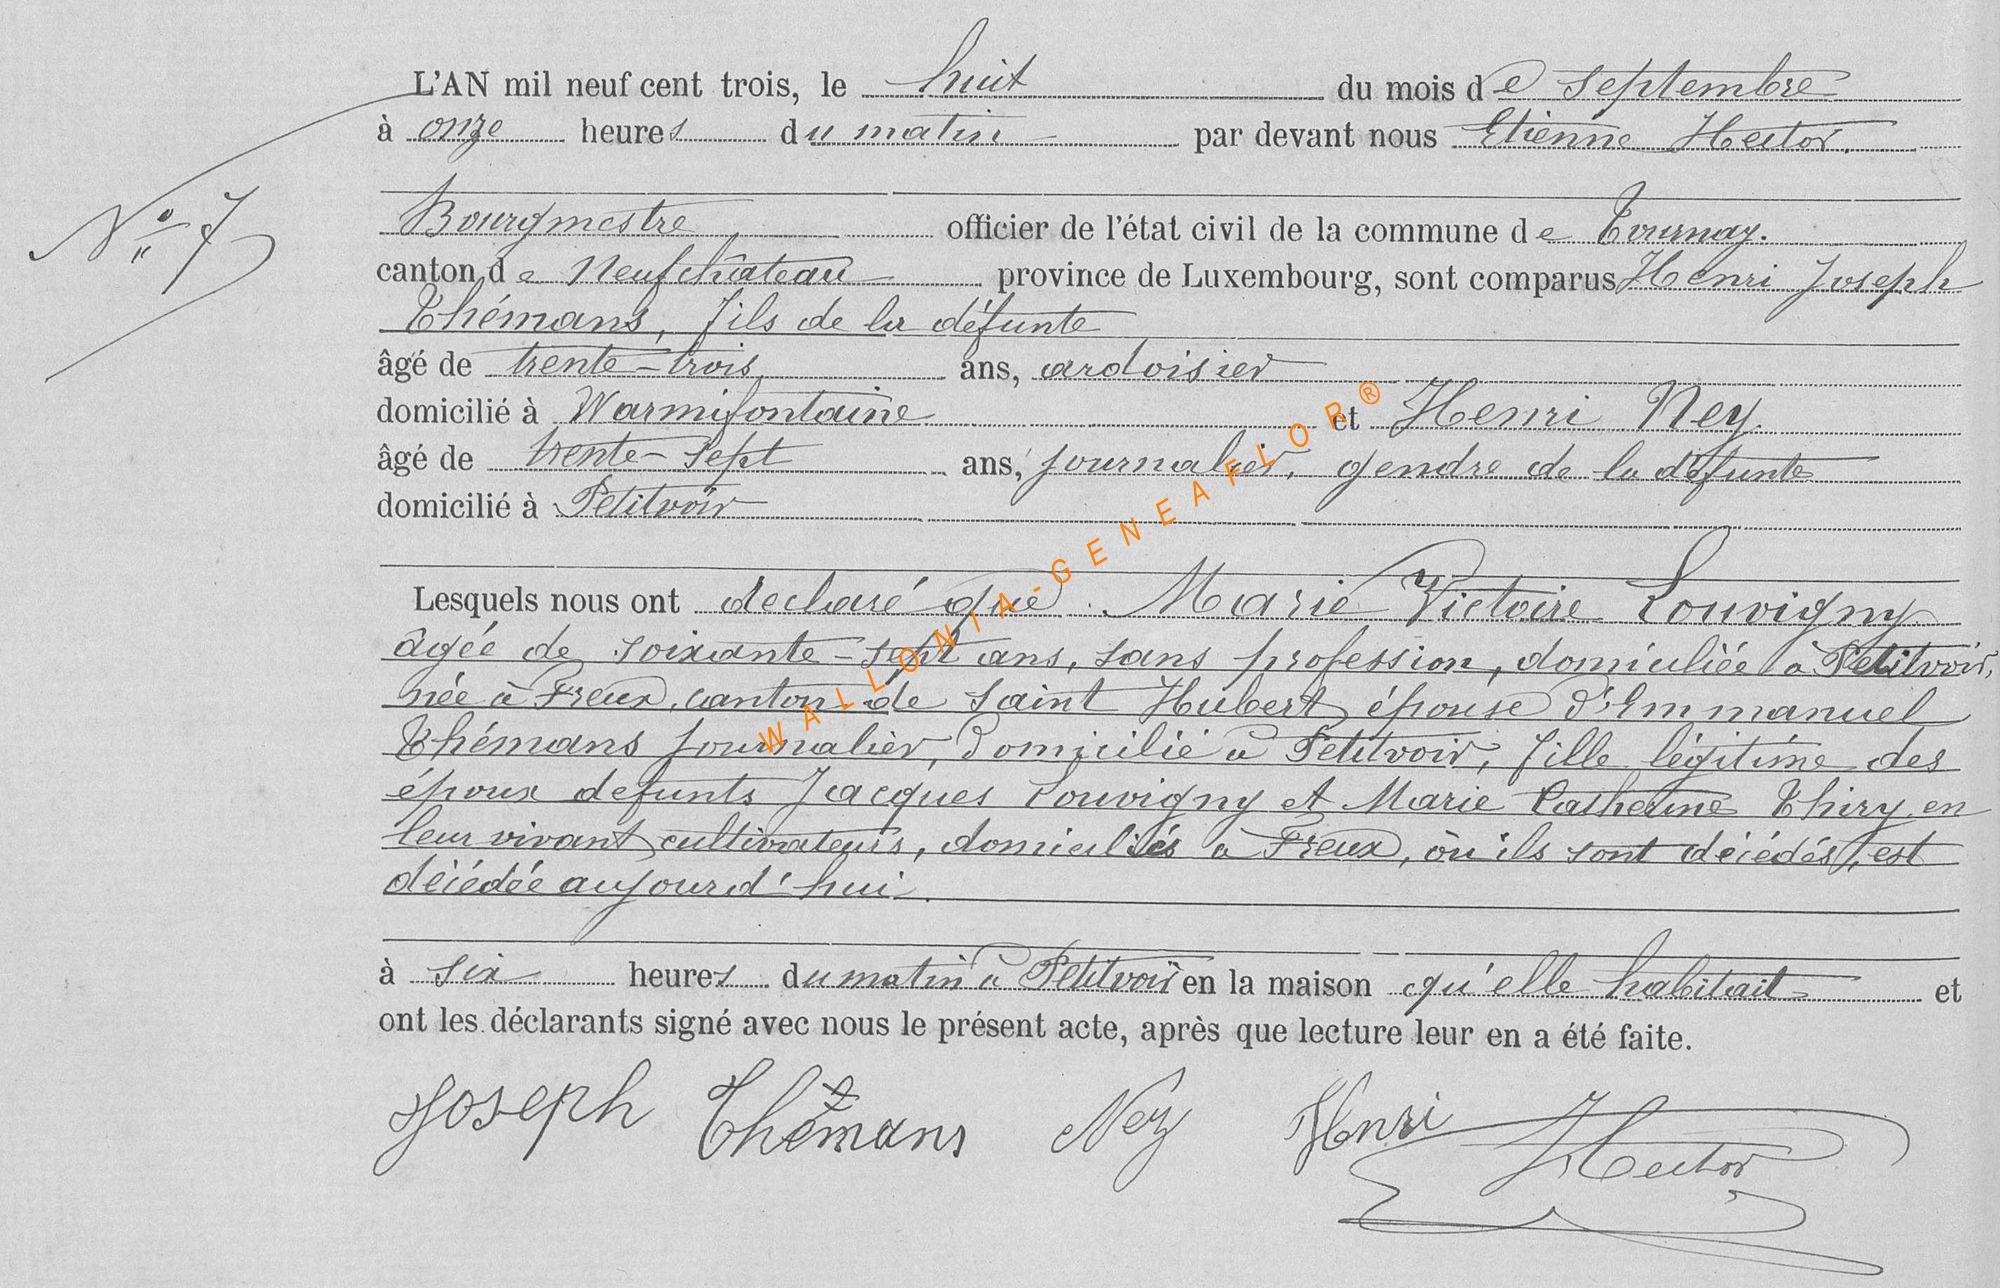 L'AN mil neuf cent trois, le huit du mois de septembre
à onze heures du matin par devant nous Etienne Hector.
N° 7
Bourgmestre officier de l'état civil de la commune de Tournay.
canton de Neufchâteau province de Luxembourg, sont comparus Henri Joseph
Thémans, fils de la défunte
âgé de trente-trois ans, ardoisier
domicilié à Warmifontaine et Henri Ney
âgé de trente-sept ans, journalier, gendre de la défunte
domicilié à Petitvoir
Lesquels nous ont declaré que Marie Victoire Louvigny
âgée de soixante-sept ans, sans profession, domiciliée à Petitvoir,
née à Freux, canton de Saint Hubert épouse d'Emmanuel
Thémans journalier, domicilié à Petitvoir, fille légitime des
époux defunts Jacques Louvigny et Marie Catherine Thiry en
leur vivant cultivateurs, domiciliés à Freux, où ils sont décédés, est
décédée aujourd'hui
à six heures du matin à Petitvoir en la maison qu'elle habitait et
ont les déclarants signé avec nous le présent acte, après que lecture leur en a été faite.
Joseph Thémans Ney Henri
Hector
WALLONIA-GENEAFLOR®